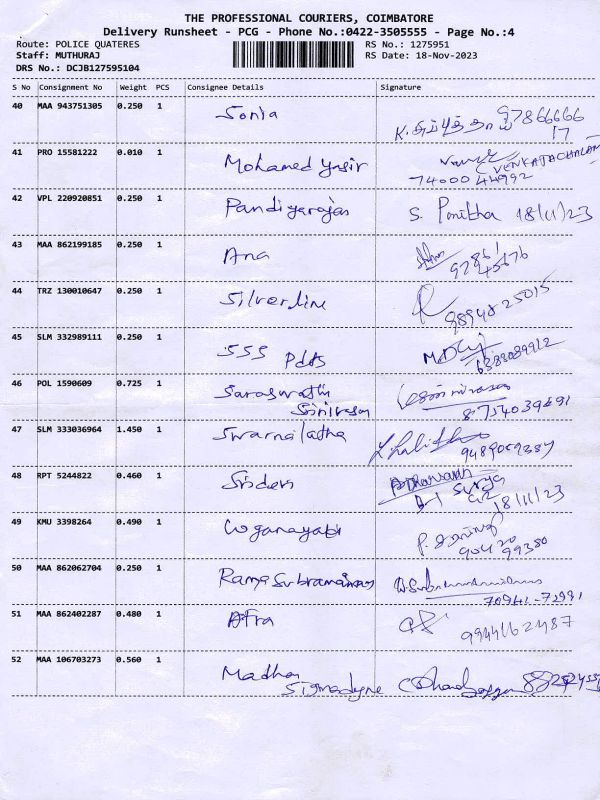 THE PROFESSIONAL COURIERS, COIMBATORE
Delivery Runsheet - PCG - Phone No.:0422-3505555 - Page No.:4
Route: POLICE QUATERES RS No.: 1275951
Staff: MUTHURAJ RS Date: 18-Nov-2023
DRS No.: DCJB127595104
S No Consignment No Weight PCS Consignee Details Signature
40 MAA 943751305 0.250 1 Sonia
97866666
17
41 PRO 15581222 0.010 1 Mohamed Yasir
(VENKATACHALAM
74000 44992
42 VPL 220920851 0.250 1 Pandiyarajan S. Ponitha 18/11/23
43 MAA 862199185 0.250 1 Ana
97861
45676
44 TRZ 130010647 0.250 1 Silverline
9894825015
45 SLM 332989111 0.250 1 SSS Pdts
6383089912
46 POL 1590609 0.725 1 Saraswathi
Srinivasan
8754039491
47 SLM 333036964 1.450 1 Swarnalatha
9489069387
48 RPT 5244822 0.460 1 Sridevi
Surya
18/11/23
49 KMU 3398264 0.490 1 Loganayaki
90420
99380
50 MAA 862062704 0.250 1 Rama Subramanian
70941-72991
51 MAA 862402287 0.480 1 Afra
9944162487
52 MAA 106703273 0.560 1 Madhan
Sigmadyne